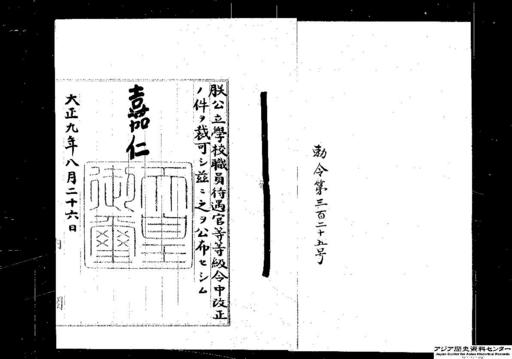 勅令第三百二十五号
朕公立學校職員待遇官等等級令中改正
ノ件ヲ裁可シ茲ニ之ヲ公布セシム
嘉仁
天皇
御璽
大正九年八月二十六日
アジア歴史資料センター
Japan Center for Asian Historical Records